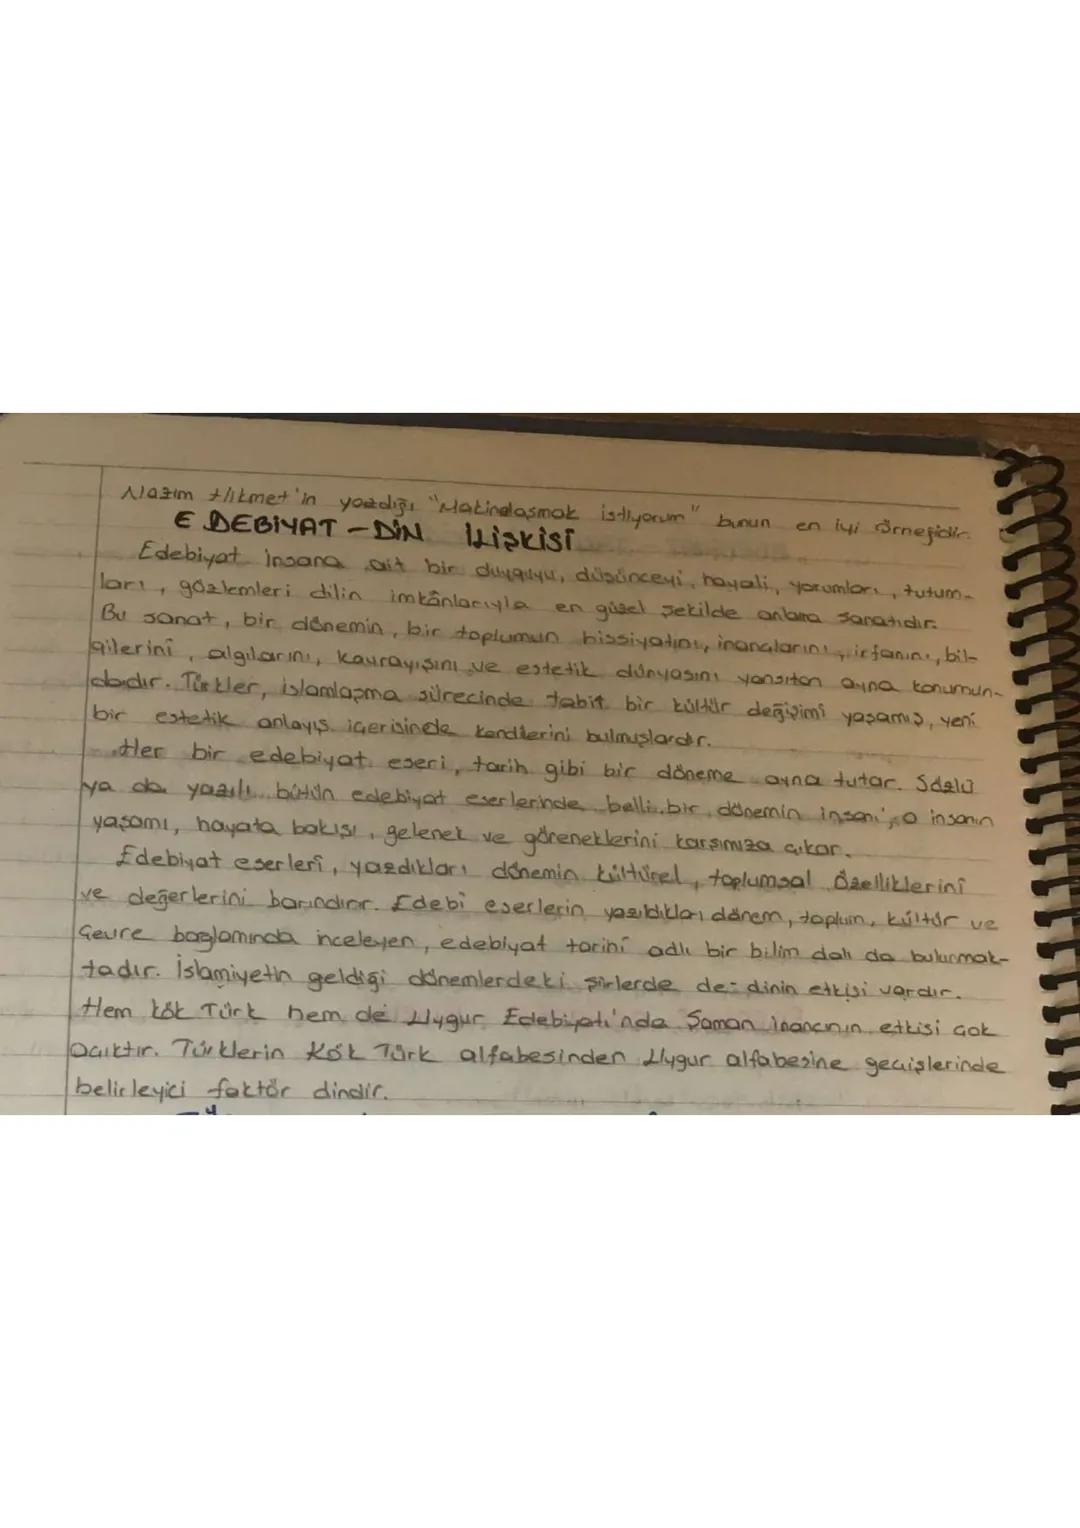 Nazım Hikmet'in yazdığı "Makinalaşmak istiyorum" bunun en iyi örneğidir.
EDEBİYAT-DİN İLİŞKİSİ
Edebiyat insana ait bir duyguyu, düşünceyi, hayali, yorumları, tutum-
ları, gözlemleri dilin imkânlarıyla en güzel şekilde anlama sanatıdır.
Bu sanat, bir dönemin, bir toplumun hissiyatını, inançlarını, irfanını, bil-
gilerini, algılarını, kavrayışını ve estetik dünyasını yansıtan ayna konumun-
dadır. Türkler, islamlaşma sürecinde tabit bir kültür değişimi yaşamış, yeni
bir estetik anlayış içerisinde kendilerini bulmuşlardır.
Her bir edebiyat eseri, tarih gibi bir döneme ayna tutar. Sözlü
ya da yazılı bütün edebiyat eserlerinde belli bir dönemin insanı, o insanın
yaşamı, hayata bakışı, gelenek ve göreneklerini karşımıza çıkar.
Edebiyat eserleri, yazdıkları dönemin kültürel, toplumsal özelliklerini
ve değerlerini barındırır. Edebi eserlerin yazıldıkları dönem, toplum, kültür ve
çevre bağlamında inceleyen, edebiyat tarihi adlı bir bilim dalı da bulunmak-
tadır. İslamiyetin geldiği dönemlerdeki şiirlerde de dinin etkisi vardır.
Hem kök Türk hem de Uygur Edebiyatı'nda Şaman inancının etkisi çok
açıktır. Türklerin Kök Türk alfabesinden Uygur alfabesine geçişlerinde
belirleyici faktör dindir.